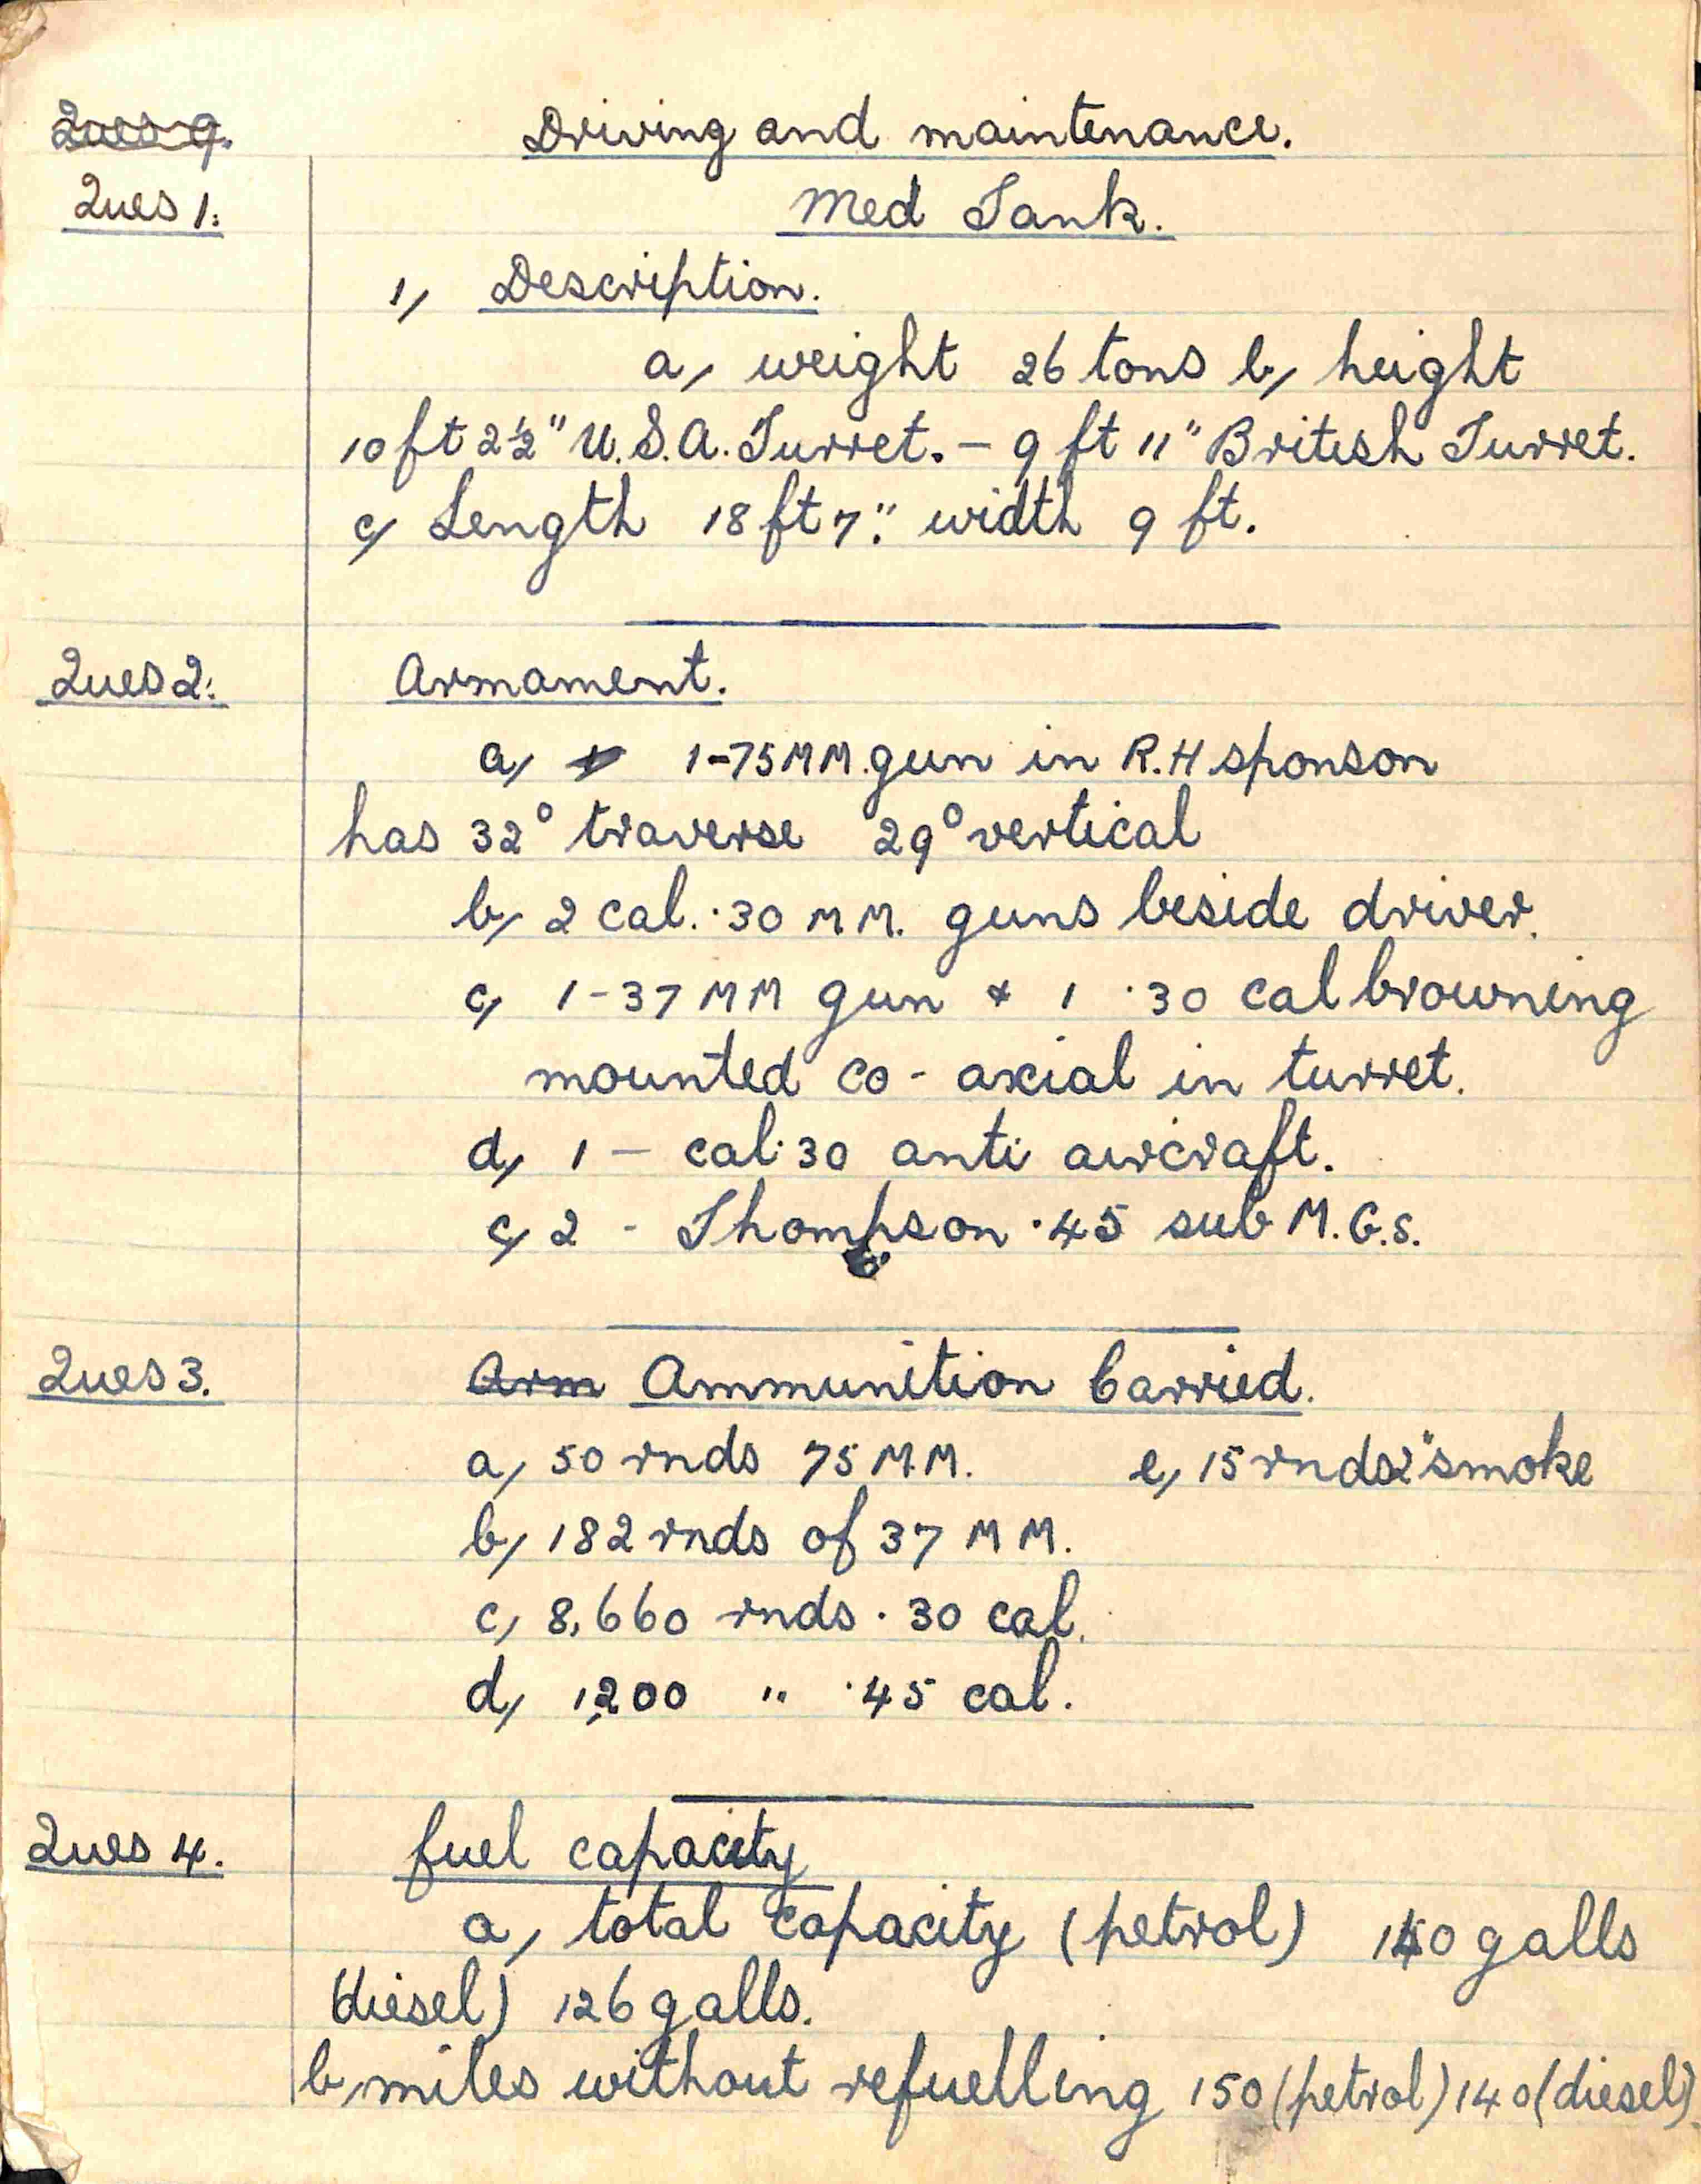 Ques 9.
Driving and maintenance.
Ques 1:
Med Tank.
1, Description.
a, weight 26 tons b, height
10 ft 2½" U.S.A. Turret. - 9 ft 11" British Turret.
c, Length 18 ft 7". width 9 ft.
Ques 2:
Armament.
a, 1 1-75 MM. gun in R.H sponson
has 32° traverse 29° vertical
b, 2 cal. ·30 MM. guns beside driver.
c, 1-37 MM gun & 1 ·30 cal browning
mounted co-axial in turret.
d, 1 - cal·30 anti aircraft.
c, 2 - Thompson ·45 sub M.G.s.
Ques 3.
Arm Ammunition Carried.
a, 50 rnds 75 M.M. e, 15 rnds 2" smoke
b, 182 rnds of 37 MM.
c, 8,660 rnds ·30 cal.
d, 1,200 " ·45 cal.
Ques 4.
fuel capacity
a, total capacity (petrol) galls
(diesel) 126 galls.
b, miles without refuelling 150 (petrol) 140 (diesel).